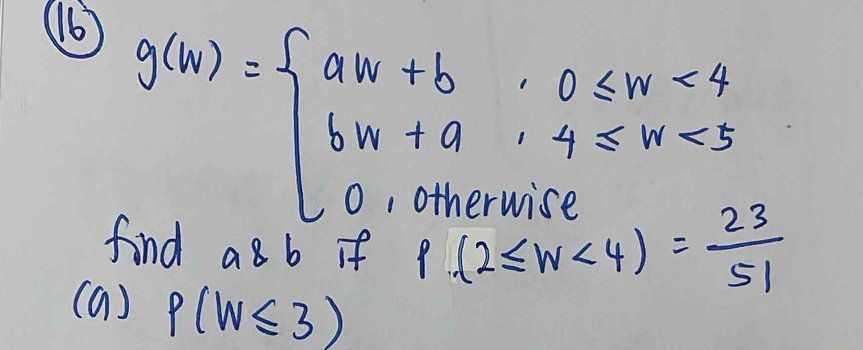 (16) g(w) = { aw + b , 0 ≤ w < 4
bw + a , 4 ≤ w < 5
0 , otherwise
find a & b if P (2 ≤ w < 4) = 23/51
(a) P(W ≤ 3)